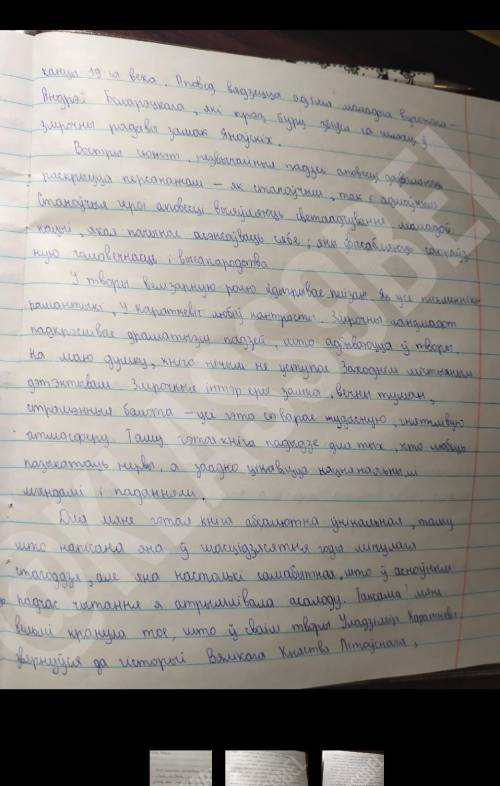 канцы 19-га века. Аповед вядзецца ад імя маладога вучонага -
Андрэя Беларэцкага, які праз буру збіўся са шляху ў
змрочны радавы замак Яноўскіх.
Вострыя сюжэт, незвычайныя падзеі аповесці дазваляюць
раскрыцца персанажам – як станоўчым, так і адмоўным.
Станоўчыя героі аповесці выяўляюць светаадчуванне маладой
нацыі, якая пачынае асэнсоўваць сябе; яны ўвасабляюць сапраўд
ную чалавечнасць і высакародства.
У творы вялізарную ролю адыгрывае пейзаж. Як усе пісьменнікі-
рамантыкі, У. Караткевіч любіў кантрасты. Змрочны ландшафт
падкрэслівае драматызм падзей, што адбываюцца ў творы.
На маю думку, кніга нічым не уступае Заходнім містычным
дэтэктывам. Змрочныя інтэр'еры замка, вечны туман,
страшэнныя балота – усё гэта стварае жудасную, гнятлівую
атмасферу. Таму гэтая кніга падыдзе для тых, хто любіць
паказытаць нервы, а заадно цікавіцца нацыянальнымі
легендамі і паданнямі.
Для мяне гэтая кніга абсалютна ўнікальная, таму
што напісана яна ў шасцідзясятыя годы мінулага
стагоддзя, але яна настолькі самабытная, што ў асноўным
падчас чытання я атрымлівала асалоду. Таксама мяне
вельмі кранула тое, што ў сваім творы Уладзімір Караткевіч
звярнуўся да гісторыі Вялікага Княства Літоўскага,
@KLASSOBEL